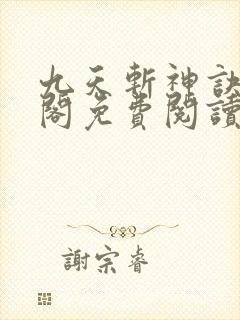 九天斬神訣
閣免費閱讀
謝宗睿